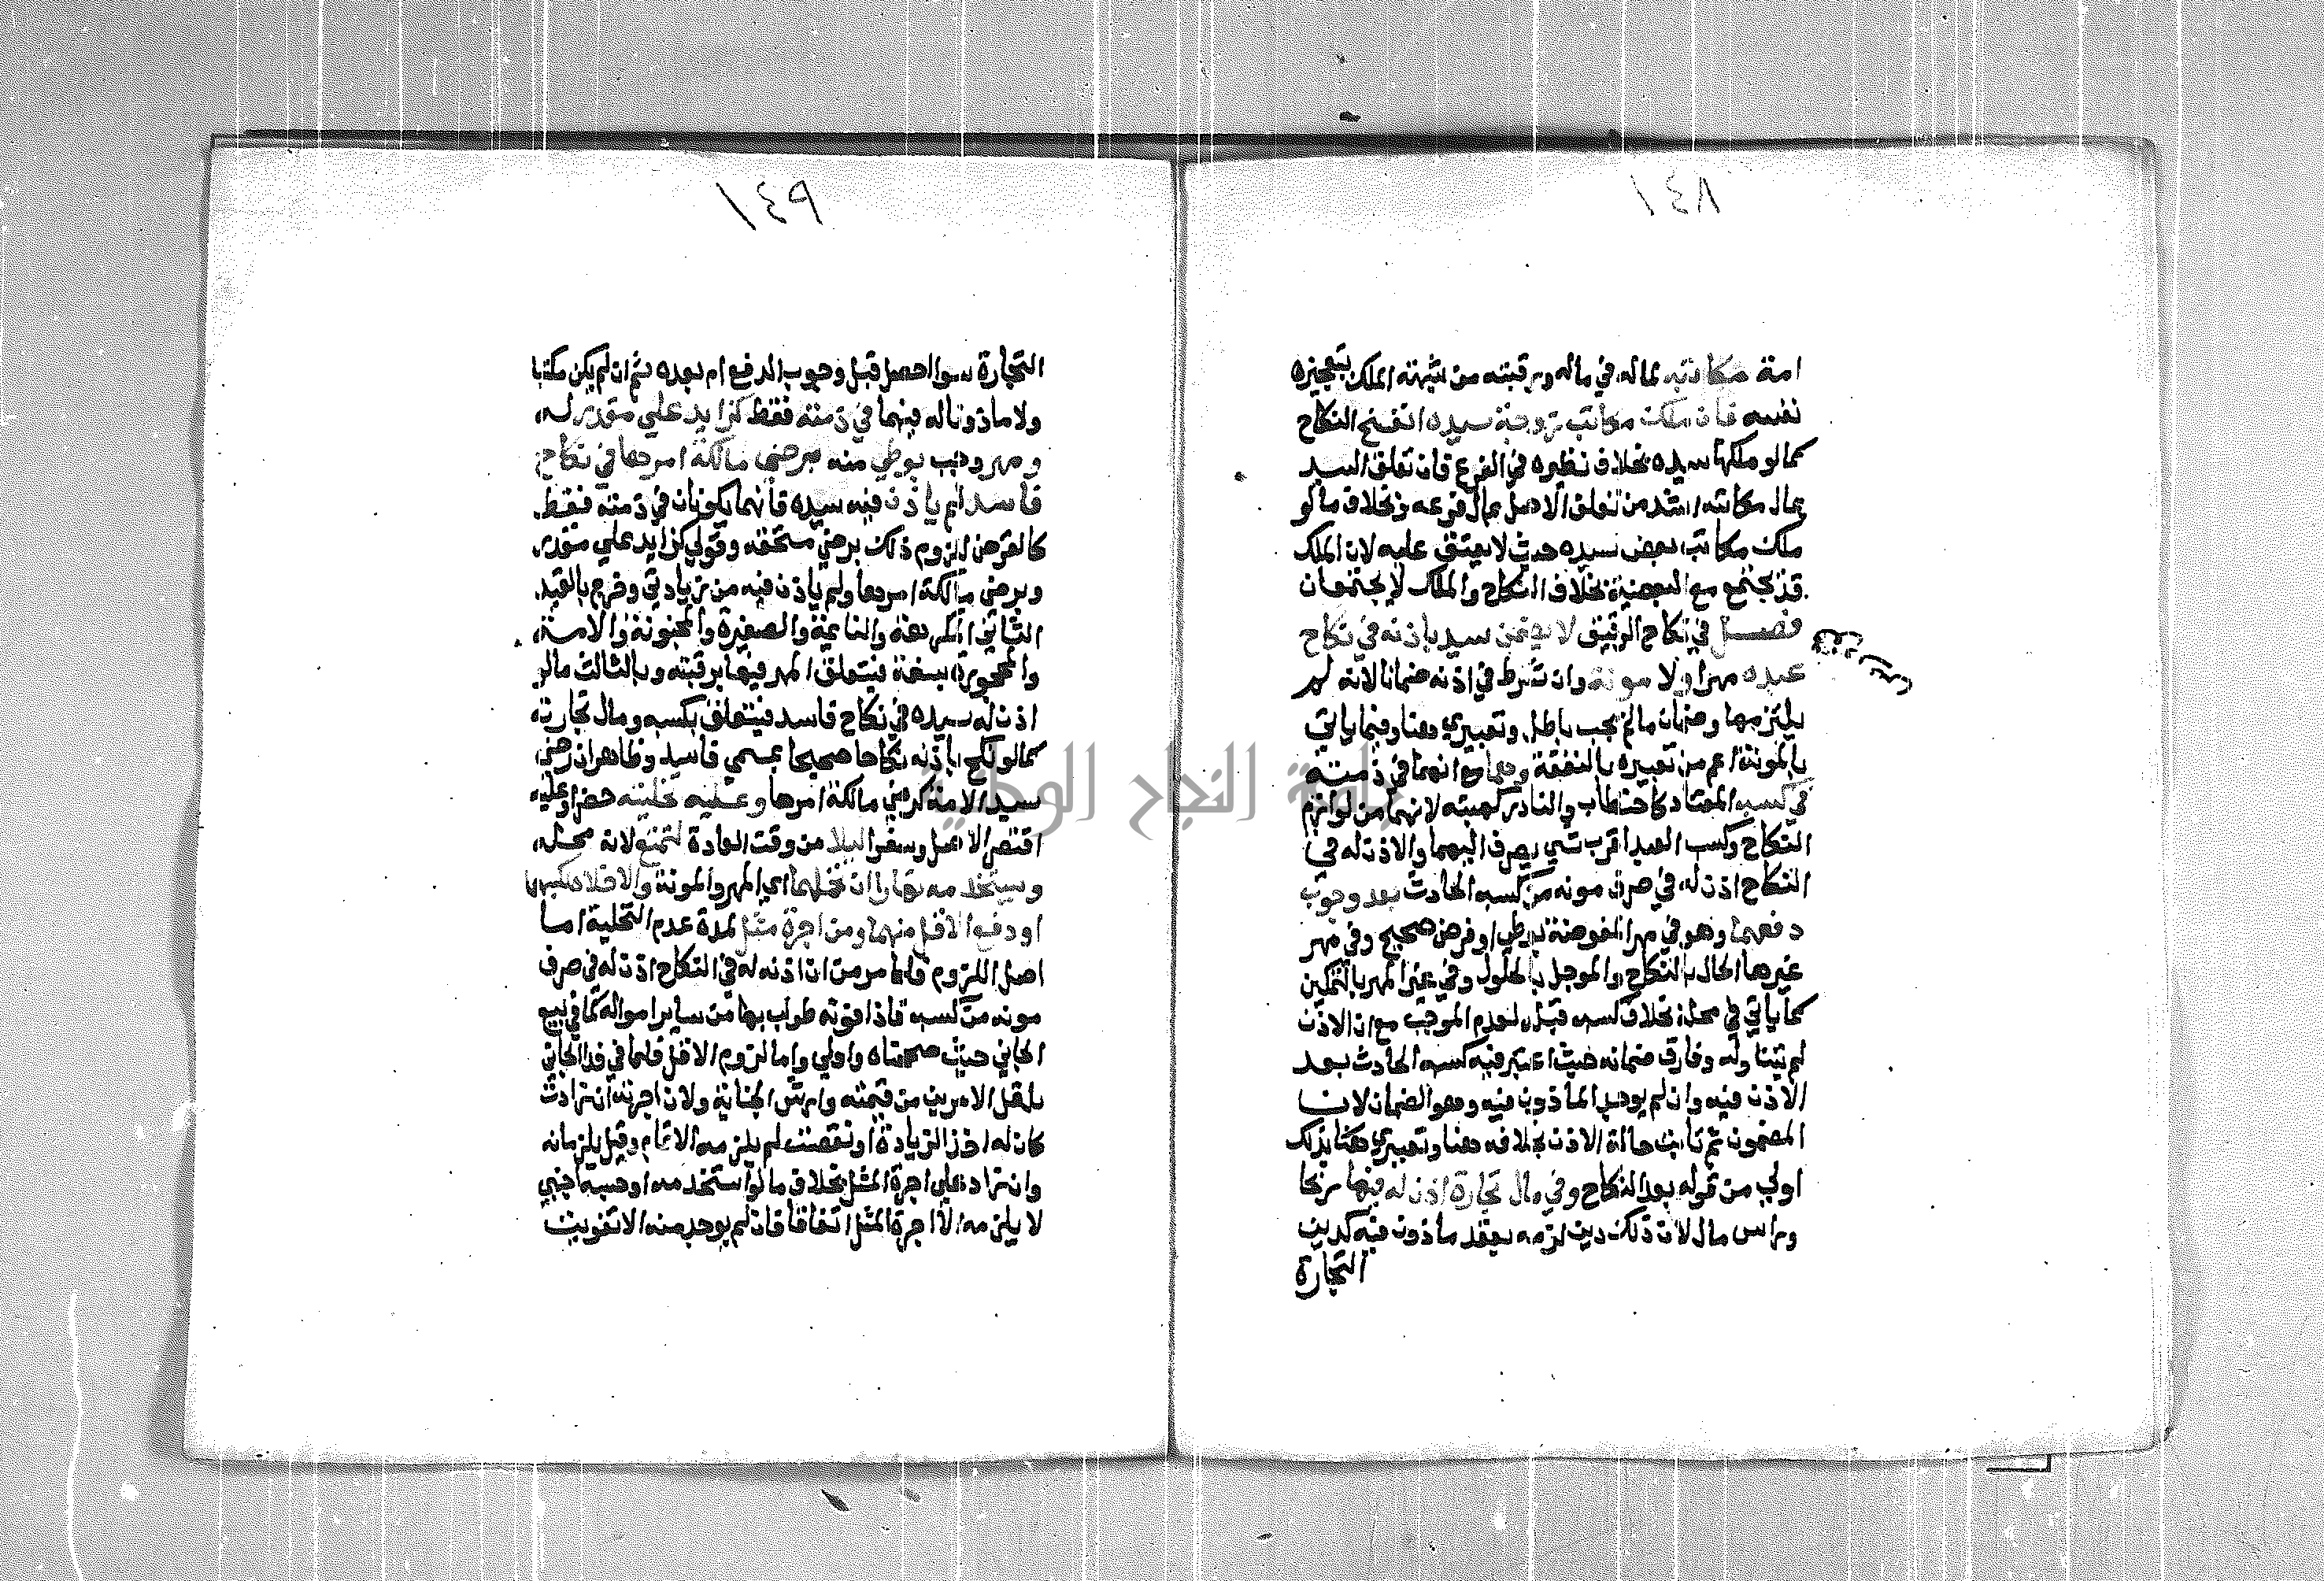 ١٤٨
امة مكاتبه بماله في ماله ورقبته من شبهة الملك بتعجيزه
نفسه فان ملك مكاتب زوجة سيده انفسخ النكاح
كما لو ملكها سيده بخلاف نظيره في الفرع فان تعلق السيد
بمال مكاتبه اشد من تعلق الاصل بمال فرعه وبخلاف ما لو
ملك مكاتب بعض سيده حيث لا يعتق عليه لان الملك
قد يجتمع مع البعضية بخلاف النكاح والملك لا يجتمعان
فصل في نكاح الرقيق لا يضمن سيد باذنه في نكاح
عبده مهرا ولا مونة وان شرط في اذنه ضمانا لانه لم
يلتزمها وضمان ما لم يجب باطل وتعبيري هنا وفيما ياتي
بالمونة اعم من تعبيره بالنفقة وهما مع انهما في ذمته
في كسبه المعتاد كاحتطاب والنادر كهبته لانهما من لوازم
النكاح وكسب العبد اقرب شي يصرف اليهما والاذن له في
النكاح اذن له في صرف مونه من كسبه الحادث بعد وجوب
دفعهما وهو في مهر المفوضة بوطي او فرض صحيح وفي مهر
غيرها الحال بالنكاح والموجل بالحلول وفي غير المهر بالتمكين
كما ياتي في محله بخلاف كسبه قبله لعدم الموجب مع ان الاذن
لم يتناوله وفارق ضمانه حيث اعتبر فيه كسبه الحادث بعد
الاذن فيه وان لم يوجد الماذون فيه وهو الضمان لان
المضمون ثم ثابت حالة الاذن بخلافه هنا وتعبيري هنا بذلك
اولى من قوله بعد النكاح وفي مال تجارة اذن له فيها ربحا
وراس مال لان ذلك دين لزمه بعقد ماذون فيه كدين
التجارة
١٤٩
التجارة سوا حصل قبل وجوب الدفع ام بعده ثم ان لم يكن مكتسبا
ولا ماذونا له فيهما في ذمته فقط كزايد على مقدر له
ومهر وجب بوطي منه برضى مالكة امرها في نكاح
فاسد لم ياذن فيه سيده فانهما يكونان في ذمته فقط
كالقرض للزوم ذلك برضى مستحقه وقولي كزايد على مقدر
وبرضى مالكة امرها ولم ياذن فيه من زيادتي وخرج بالقيد
الثاني المكرهة والنايمة والصغيرة والمجنونة والامة
والمحجورة بسفه فيتعلق المهر فيها برقبته وبالثالث ما لو
اذن له سيده في نكاح فاسد فيتعلق بكسبه ومال تجارته
كما لو نكح باذنه نكاحا صحيحا بمسمى فاسد وظاهر ان رضى
سيد الامة كرضى مالكة امرها وعليه تخليته حضرا وعليه
اقتصر الاصل وسفرا ليلا من وقت العادة لتمتع لانه محله
ويستخدمه نهارا ان تحملهما اي المهر والمونة والا فلا لكسبهما
او دفع الاقل منهما ومن اجرة مثل لمدة عدم التخلية اما
اصل اللزوم فلما مر من ان اذنه له في النكاح اذن له في صرف
مونه من كسبه فاذا فوته طولب بها من ساير امواله كما في بيع
الجاني حيث صححناه واولى واما لزوم الاقل فلما في فدا الجاني
باقل الامرين من قيمته وارش الجناية ولان اجرته ان زادت
كان له اخذ الزيادة او نقصت لم يلزمه الاتمام وقيل يلزمانه
وان زاد على اجرة المثل بخلاف ما لو استخدمه او حبسه اجنبي
لا يلزمه الا اجرة المثل اتفاقا فان لم يوجد منه الا تفويت
جامعة النجاح الوطنية